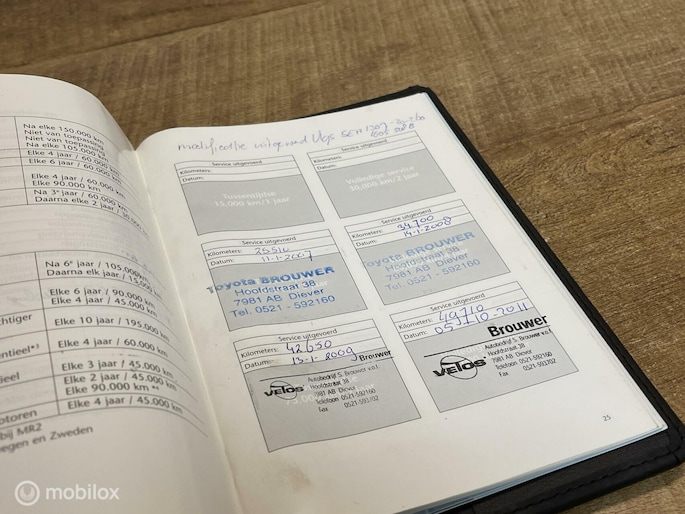 Na elke 150.000 km
Niet van toepassing
Niet van toepassing
Na elke 105.000 km
Elke 4 jaar / 60.000
Elke 6 jaar / 60.000
Elke 4 jaar / 60.000
Elke 90.000 km
Na 3e jaar / 60.000 km
Daarna elke 2 jaar / 30.000
Na 6e jaar / 105.000km
Daarna elk jaar / 15.000
Elke 6 jaar / 90.000 km
Elke 4 jaar / 45.000 km
chtiger
Elke 10 jaar / 195.000 km
entieel*3
Elke 4 jaar / 60.000 km
ieel
Elke 3 jaar / 45.000 km
Elke 2 jaar / 45.000 km
Elke 90.000 km
otoren
Elke 4 jaar / 45.000 km
bij MR2
egen en Zweden
modificatie uitgevoerd
Service uitgevoerd
Kilometers:
Datum:
Tussentijdse
15.000 km/1 jaar
Service uitgevoerd
Kilometers:
Datum:
Volledige service
30.000 km/2 jaar
Service uitgevoerd
Kilometers: 25510
Datum: 11-1-2007
Toyota BROUWER
Hoofdstraat 38
7981 AB Diever
Tel. 0521 - 592160
Service uitgevoerd
Kilometers: 34700
Datum: 14-1-2008
Toyota BROUWER
Hoofdstraat 38
7981 AB Diever
Tel. 0521 - 592160
Service uitgevoerd
Kilometers: 42650
Datum: 13-1-2009
Brouwer
VELOS
Autobedrijf S. Brouwer v.o.f.
Hoofdstraat 38
7981 AB Diever
Telefoon 0521-592160
Fax 0521-593702
Service uitgevoerd
Kilometers: 49710
Datum: 05-10-2011
Brouwer
VELOS
Autobedrijf S. Brouwer v.o.f.
Hoofdstraat 38
7981 AB Diever
Telefoon 0521-592160
Fax 0521-593702
25
mobilox